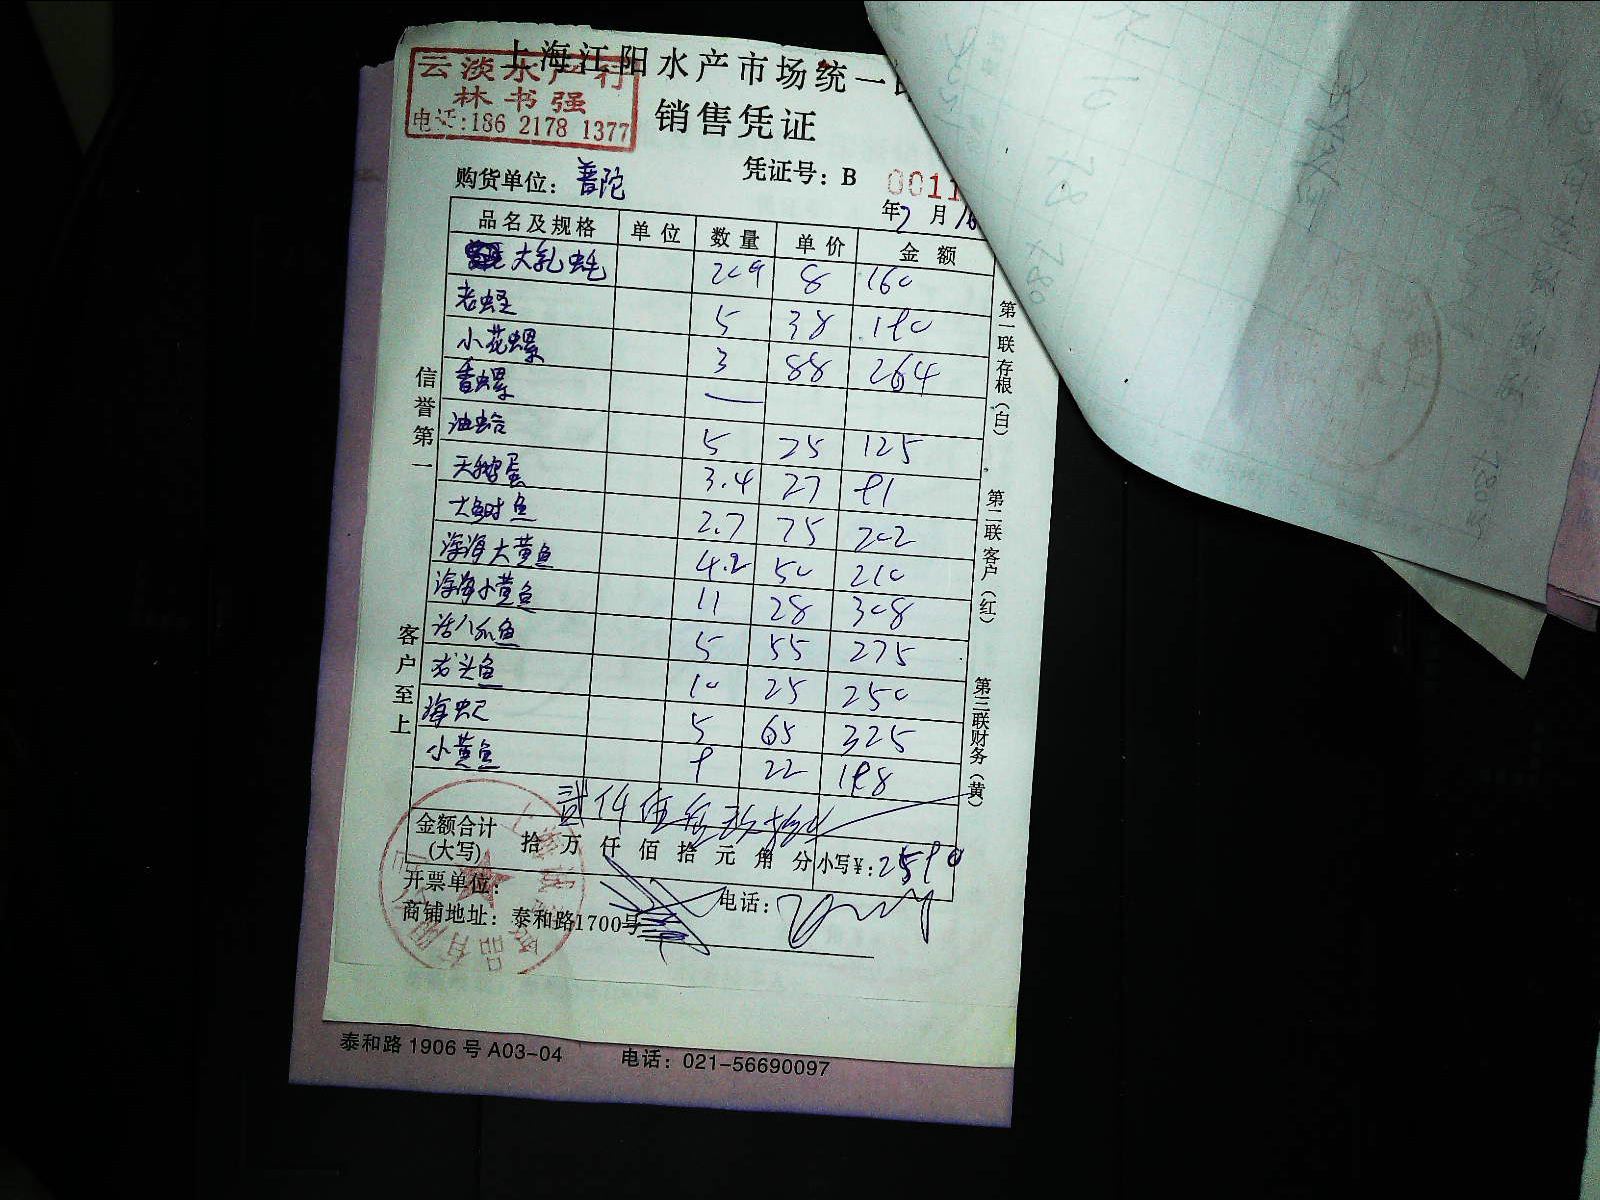 上海江阳水产市场统一
云淡水产行
林书强
电话:186 2178 1377
销售凭证
凭证号: B 0011
购货单位: 普陀
年7月16
品名及规格 单位 数量 单价 金额
大乳蚝 209 8 160
老蛏 5 38 190
小花螺 3 88 264
香螺 —
油蛤 5 25 125
天鹅蛋 3.4 27 91
鱼 2.7 75 202
深海大黄鱼 4.2 50 210
深海小黄鱼 11 28 308
活八爪鱼 5 55 275
龙头鱼 10 25 250
海 5 65 325
小黄鱼 9 22 198
贰仟伍佰玖拾
金额合计
(大写) 拾 万 仟 佰 拾 元 角 分 小写¥: 2590
开票单位: 电话:
商铺地址: 泰和路1700号
信誉第一
客户至上
第一联 存根(白)
第二联 客户(红)
第三联 财务(黄)
泰和路 1906 号 A03-04 电话: 021-56690097